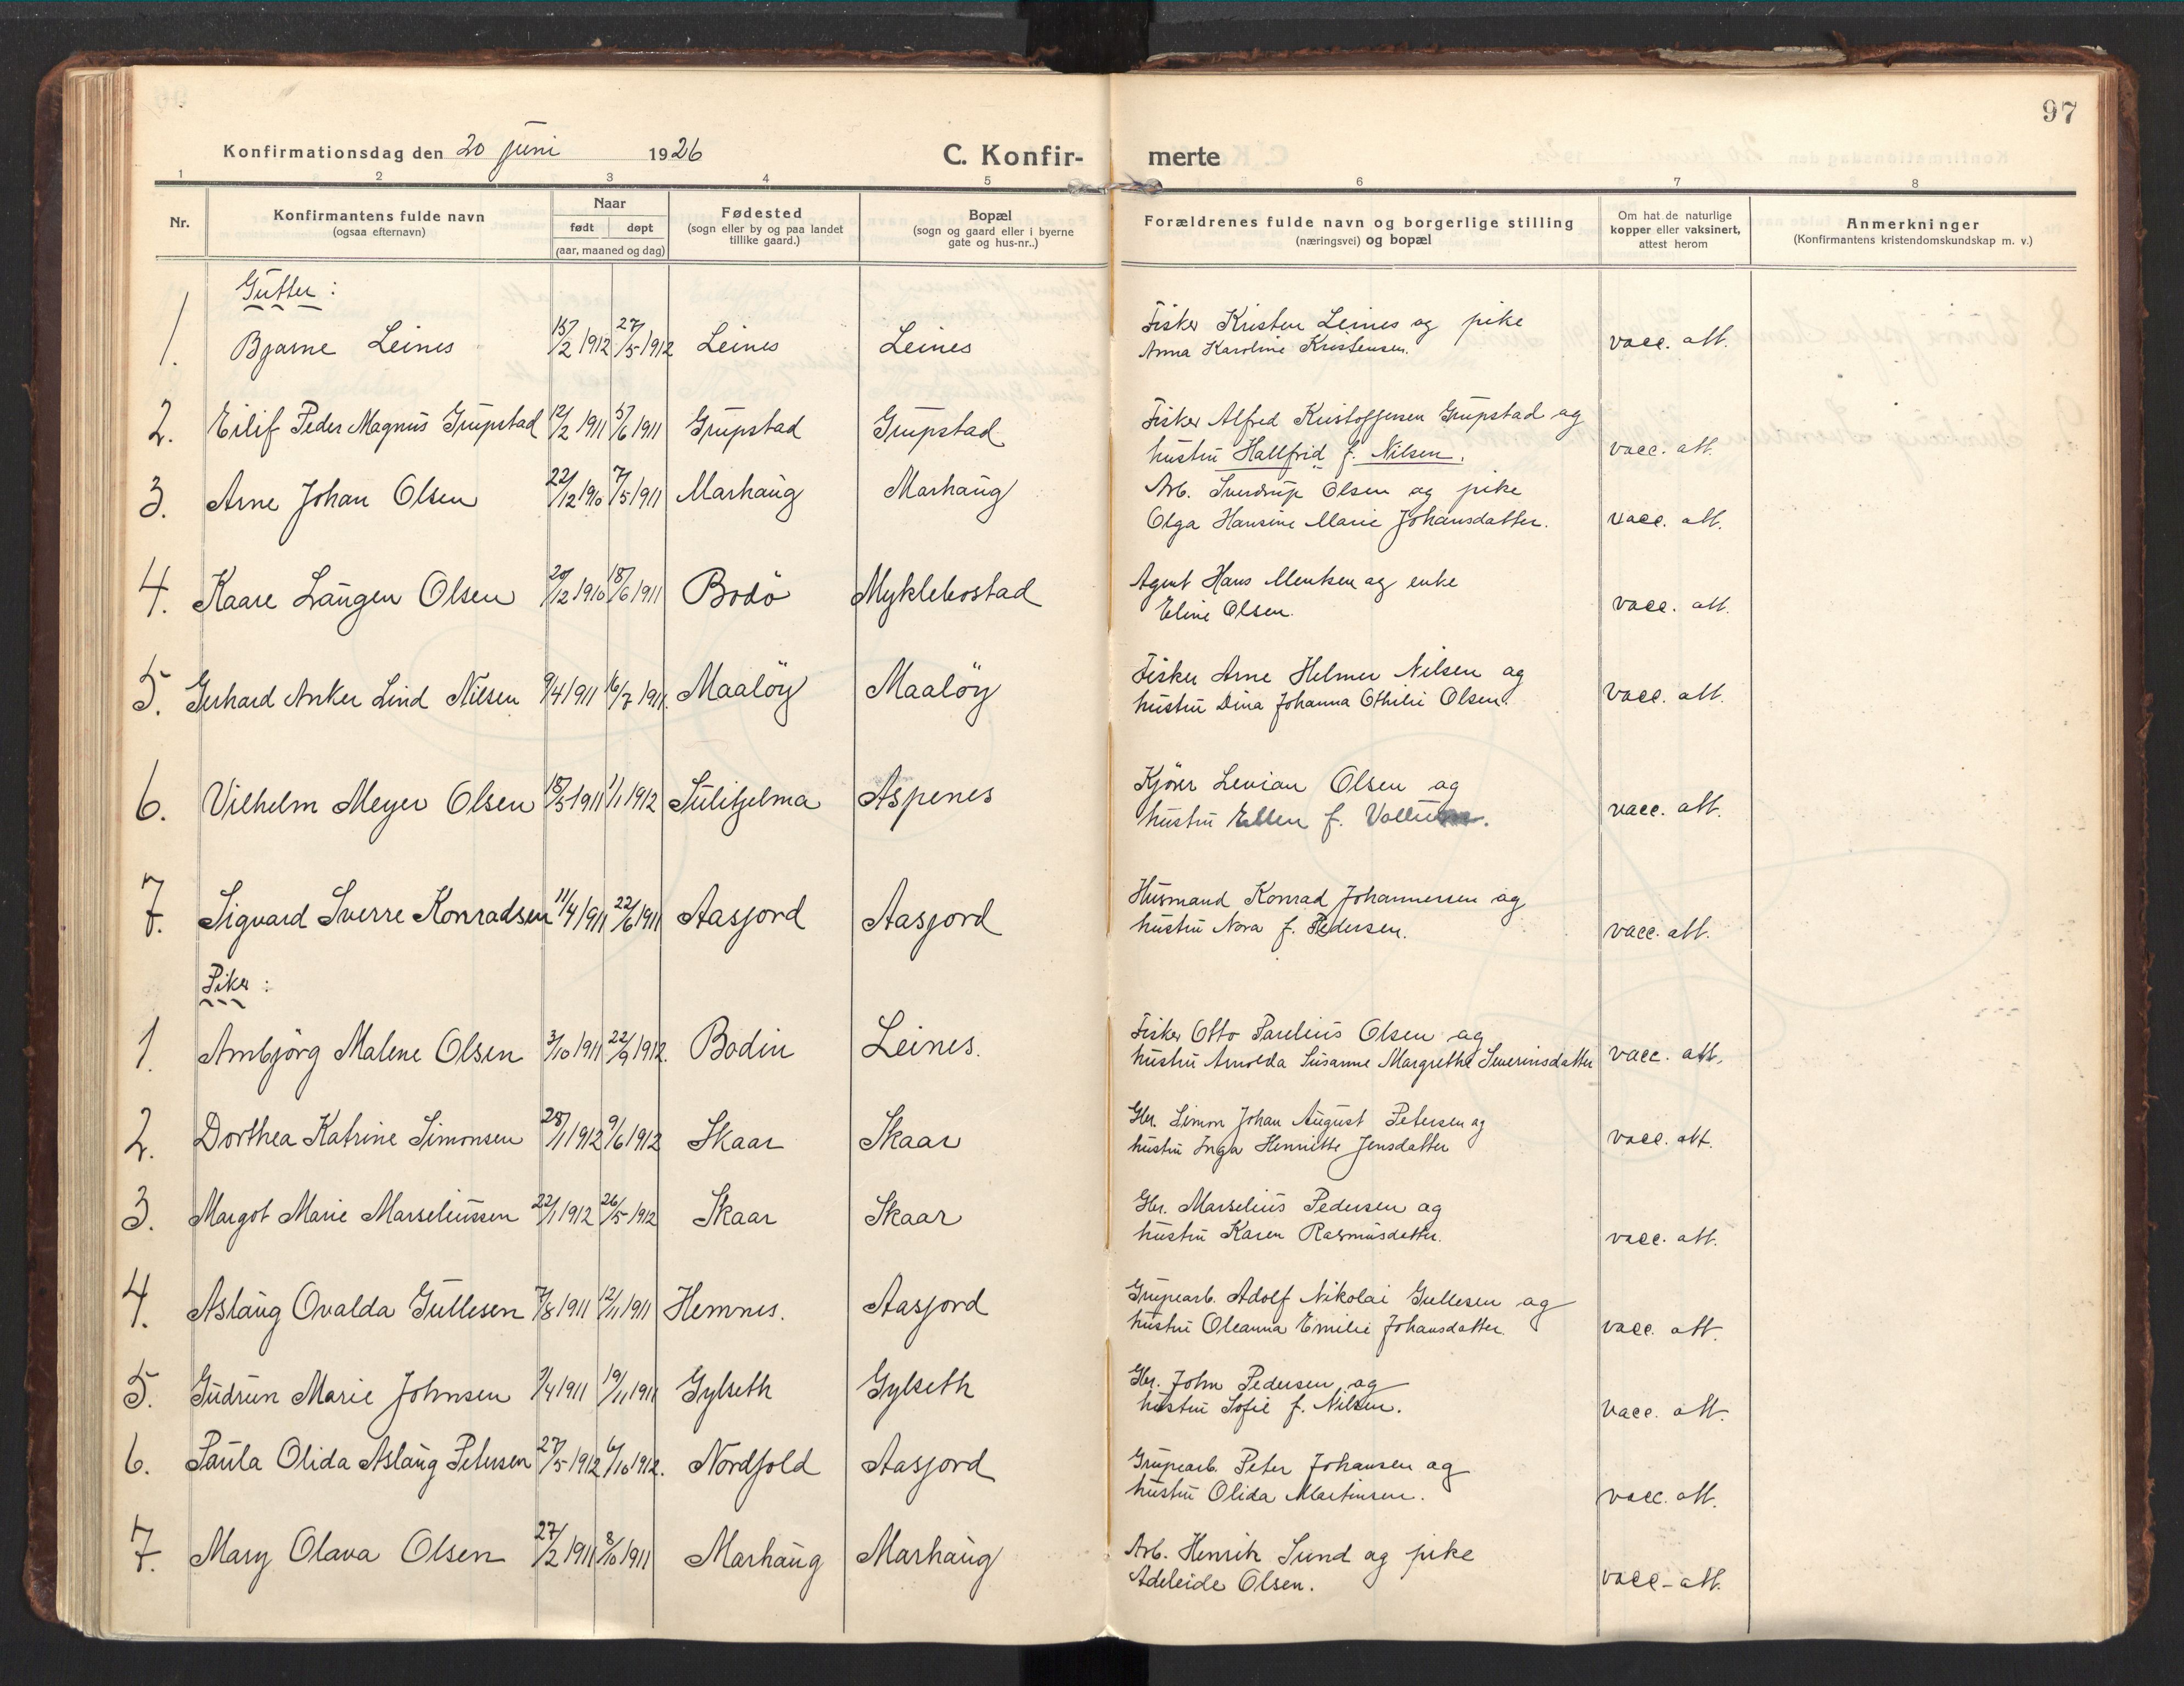 97
Konfirmationsdag den 20 juni 1926 C. Konfir- merte
1 2 3 4 5 6 7 8
Nr. Konfirmantens fulde navn (ogsaa efternavn) Naar født døpt (aar, maaned og dag) Fødested (sogn eller by og paa landet tillike gaard.) Bopæl (sogn og gaard eller i byerne gate og hus-nr..) Forældrenes fulde navn og borgerlige stilling (næringsvei) og bopæl Om hat de naturlige kopper eller vaksinert, attest herom Anmerkninger (Konfirmantens kristendomskundskap m. v.)
Gutter :
1. Bjarne Leines 15/2 1912 27/5 1912 Leines Leines Fisker Kristen Leines og pike vacc. att.
Anna Karoline Kristensen.
2. Eilif Peder Magnus Grupstad 12/2 1911 5/6 1911 Grupstad Grupstad Fisker Alfred Kristoffersen Grupstad og
hustru Hallfrid f. Nilsen. vacc. att.
3. Arne Johan Olsen 22/12 1910 7/5 1911 Marhaug Marhaug Arb. Sverdrup Olsen og pike
Olga Hansine Marie Johansdatter. vacc. att.
4. Kaare Langen Olsen 20/12 1910 18/6 1911 Bodö Myklebostad Agent Hans Mentsen og enke
Eline Olsen. vacc. att.
5. Gerhard Anker Lind Nilsen 9/4 1911 16/7 1911. Maalöy Maalöy Fisker Arne Helmer Nilsen og
hustru Dina Johanna Othilie Olsen. vacc. att.
6. Vilhelm Meyer Olsen 18/5 1911 1/1 1912 Sulitjelma Aspenes Kjörer Levian Olsen og
hustru Ellen f. vacc. att.
7. Sigvard Sverre Konradsen 11/4 1911 22/6 1911 Aasjord Aasjord Husmand Konrad Johannessen og
hustru Nora f. Pedersen. vacc. att.
Piker :
1. Arnbjörg Malene Olsen 3/10 1911 22/9 1912. Bodin Leines. Fisker Otto Parelius Olsen og
hustru Arnolda Susanne Margrethe Severinsdatter vacc. att.
2. Dorthea Katrine Simonsen 28/1 1912 9/6 1912 Skaar Skaar Gbr. Simon Johan August Petersen og
hustru Inga Henriette Jensdatter vacc. att.
3. Margot Marie Marseliussen 22/1 1912 26/5 1912 Skaar Skaar Gbr. Marselius Pedersen og
hustru Karen Rasmusdatter. vacc. att.
4. Aslaug Ovalda Gullesen 7/8 1911 12/11 1911 Hemnes. Aasjord Grupearb. Adolf Nikolai Gullesen og
hustru Oleanna Emilie Johansdatter. vacc. att.
5. Gudrun Marie Johnsen 9/4 1911 19/11 1911 Gylseth Gylseth Gbr. John Pedersen og
hustru Sofie f. Nilsen. vacc. att.
6. Paula Olida Aslaug Petersen 27/5 1912 6/10 1912. Nordfold Aasjord Grupearb. Peter Johansen og
hustru Olida Martinsen. vacc. att.
7. Mary Olava Olsen 27/2 1911 8/10 1911 Marhaug Marhaug Arb. Henrik Sund og pike
Adeleide Olsen. vacc. att.